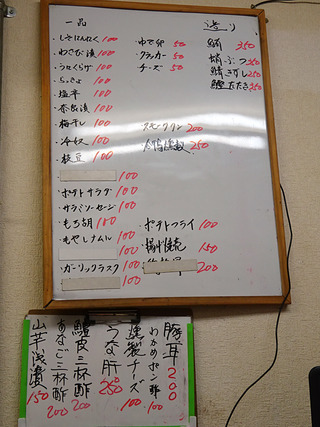 一品
しそにんにく 100
わさび漬 100
うにくらげ 100
らっきょ 100
塩辛 100
奈良漬 100
梅干し 100
冷奴 100
枝豆 100
100
ポテトサラダ 100
サラミソーセージ 100
もろ胡 100
もやしナムル 100
100
ガーリックラスク 100
100
ゆで卵 50
クラッカー 50
チーズ 50
200
250
ポテトフライ 100
150
200
造り
鯖 350
蛸ぶつ 350
鯖きずし 250
鰹たたき 350
豚耳 200
わかめポン酢 100
燻製チーズ 100
うな肝 250
鰻皮三杯酢 200
あなご三杯酢 200
山芋浅漬 150